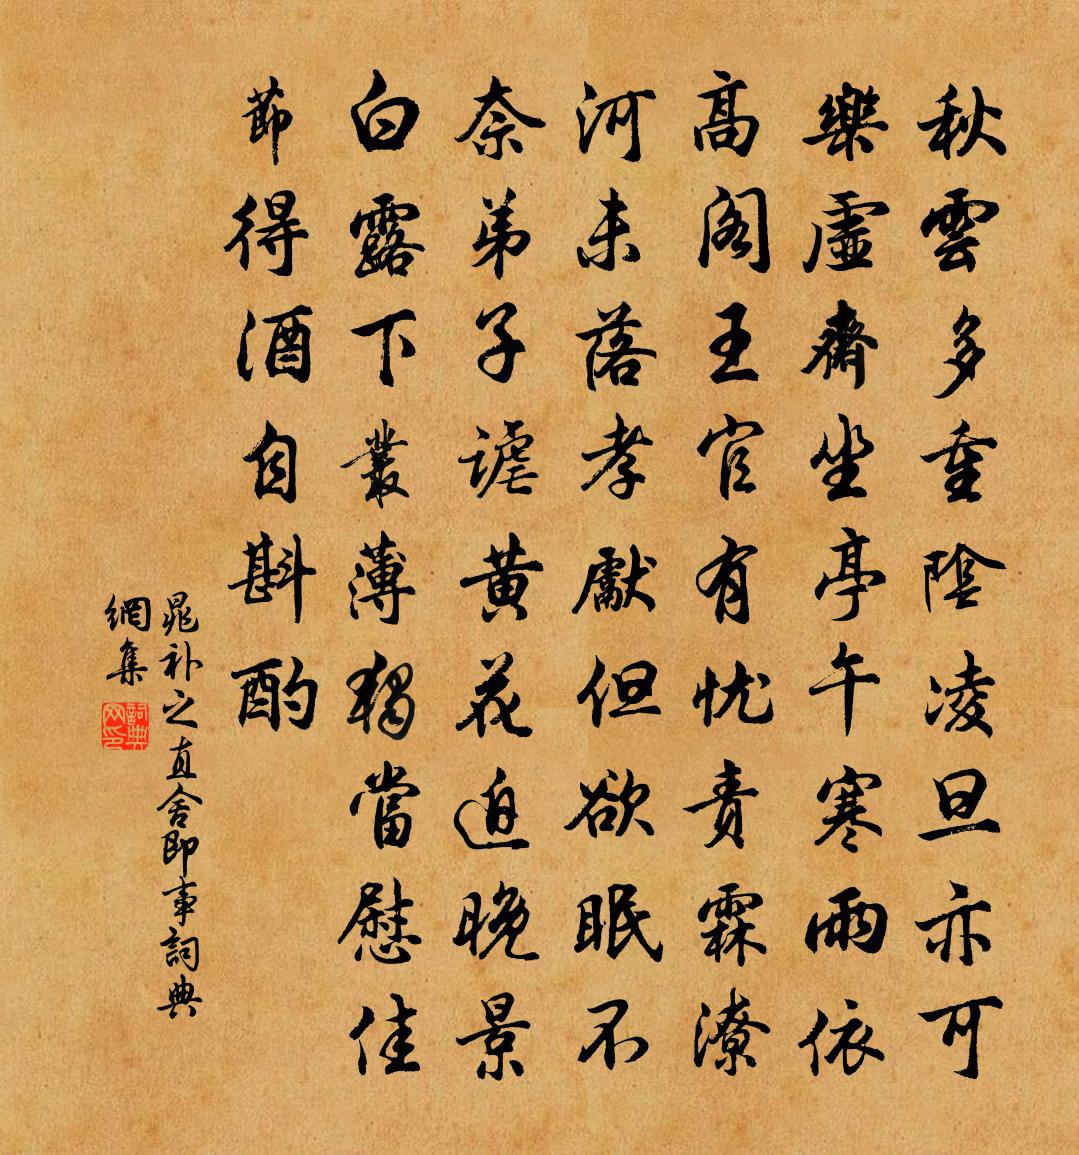 秋雲多重陰凌旦亦可
樂虛齋坐亭午寒雨依
高閣王官有忧責霖潦
河未落孝獻但欲眠不
奈弟子謔黃花迫晚景
白露下叢薄獨當慰佳
節得酒自斟酌
晁补之直舍即事詞典
網集
詞典
网印